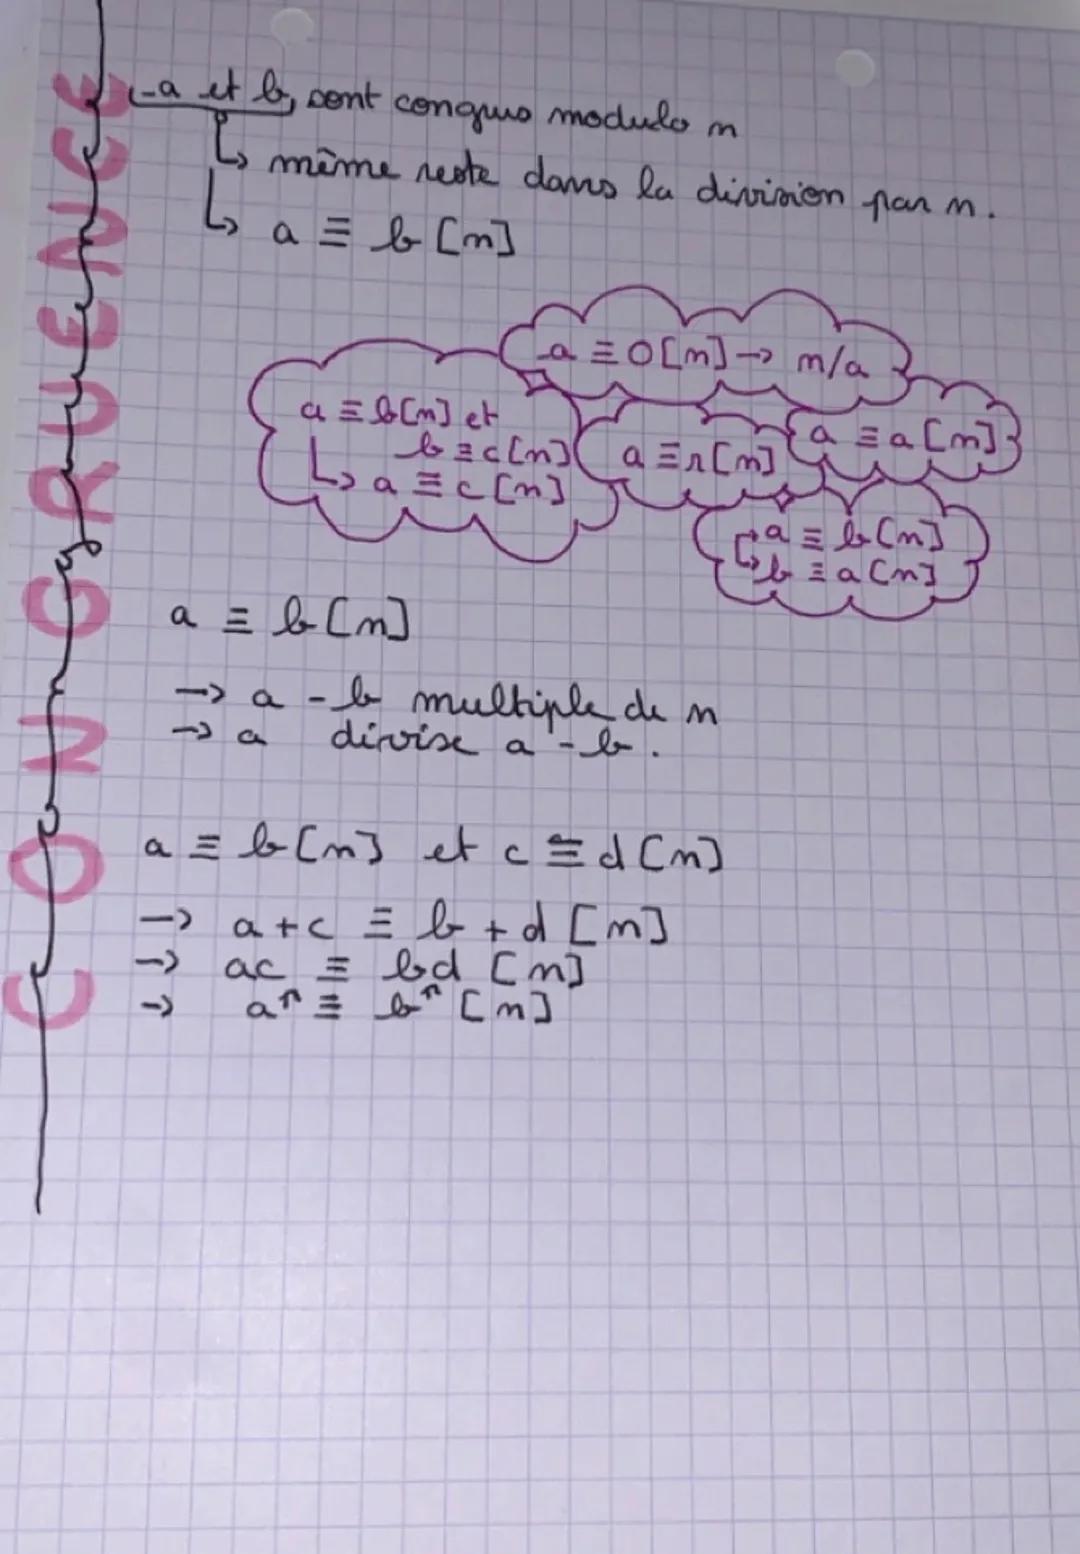 CONGRUENCE
- a et b, sont congrus modulo n
↳ même reste dans la division par n.
↳ a ≡ b [n]
a ≡ 0 [n] → n/a
a ≡ b [n] et
b ≡ c [n]
↳ a ≡ c [n]
a ≡ r [n]
a ≡ a [n]
a ≡ b [n]
b ≡ a [n]
a ≡ b [n]
→ a - b multiple de n
→ a divise a - b.
a ≡ b [n] et c ≡ d [n]
→ a + c ≡ b + d [n]
→ ac ≡ bd [n]
→ aⁿ ≡ bⁿ [n]